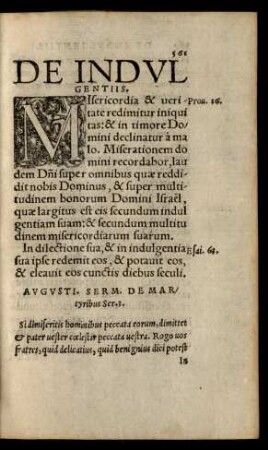 561
DE INDVL
GENTIIS.
MIsericordia & ueri Prou. 16.
tate redimitur iniqui
tas: & in timore Do
mini declinatur à ma
lo. Miserationem do
mini recordabor, lau
dem Dñi super omnibus quæ reddi
dit nobis Dominus, & super multi
tudinem bonorum Domini Israël,
quæ largitus est eis secundum indul
gentiam suam: & secundum multitu
dinem misericordiarum suarum.
In dilectione sua, & in indulgentia Esai. 63.
sua ipse redemit eos, & potauit eos,
& eleuait eos cunctis diebus seculi.
AVGVSTI. SERM. DE MAR/
tyribus Ser. 1.
Si dimiseritis hominibus peccata eorum, dimittet
& pater uester cœlestis peccata uestra. Rogo uos
fratres, quid delicatius, quid benignius dici potest
In